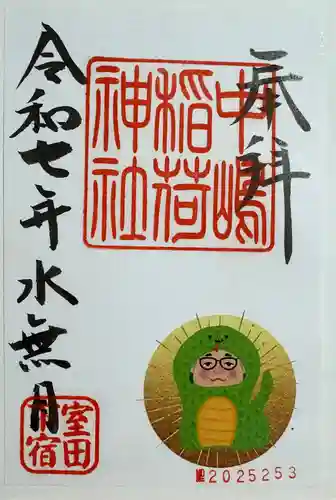 奉拝
中嶋
稲荷
神社
令和七年水無月
室田
宿
2025253